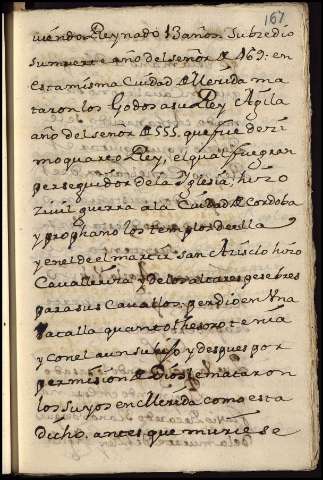 167
viendo Reynado 13 años. Subcedio
su muerte año del señor de 469: en
esta misma Ciudad de Merida ma
taron los Godos a su Rey Agila
año del señor de 555. que fue dezi
mo quarto Rey, el qual fue gran
perseguidor de la Yglesia, hizo
zivil guerra a la Ciudad de Cordoba
y prophano los templos de ella
y en el de el martir San Acisclo hizo
Cavalleriza y de los altares pesebres
para sus Cavallos, perdio en una
vatalla quanto thesoro tenia
y con el a un su hijo y despues por
permision de Dios le mataron
los suyos en Merida como esta
dicho. antes que muriese